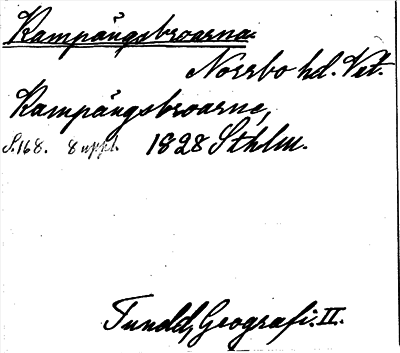 Kampängsbroarna.
Norrbo hd. Vet.
Kampängsbroarne,
S. 168. 8 uppl. 1828 Sthlm.
Tuneld, Geografi. II.